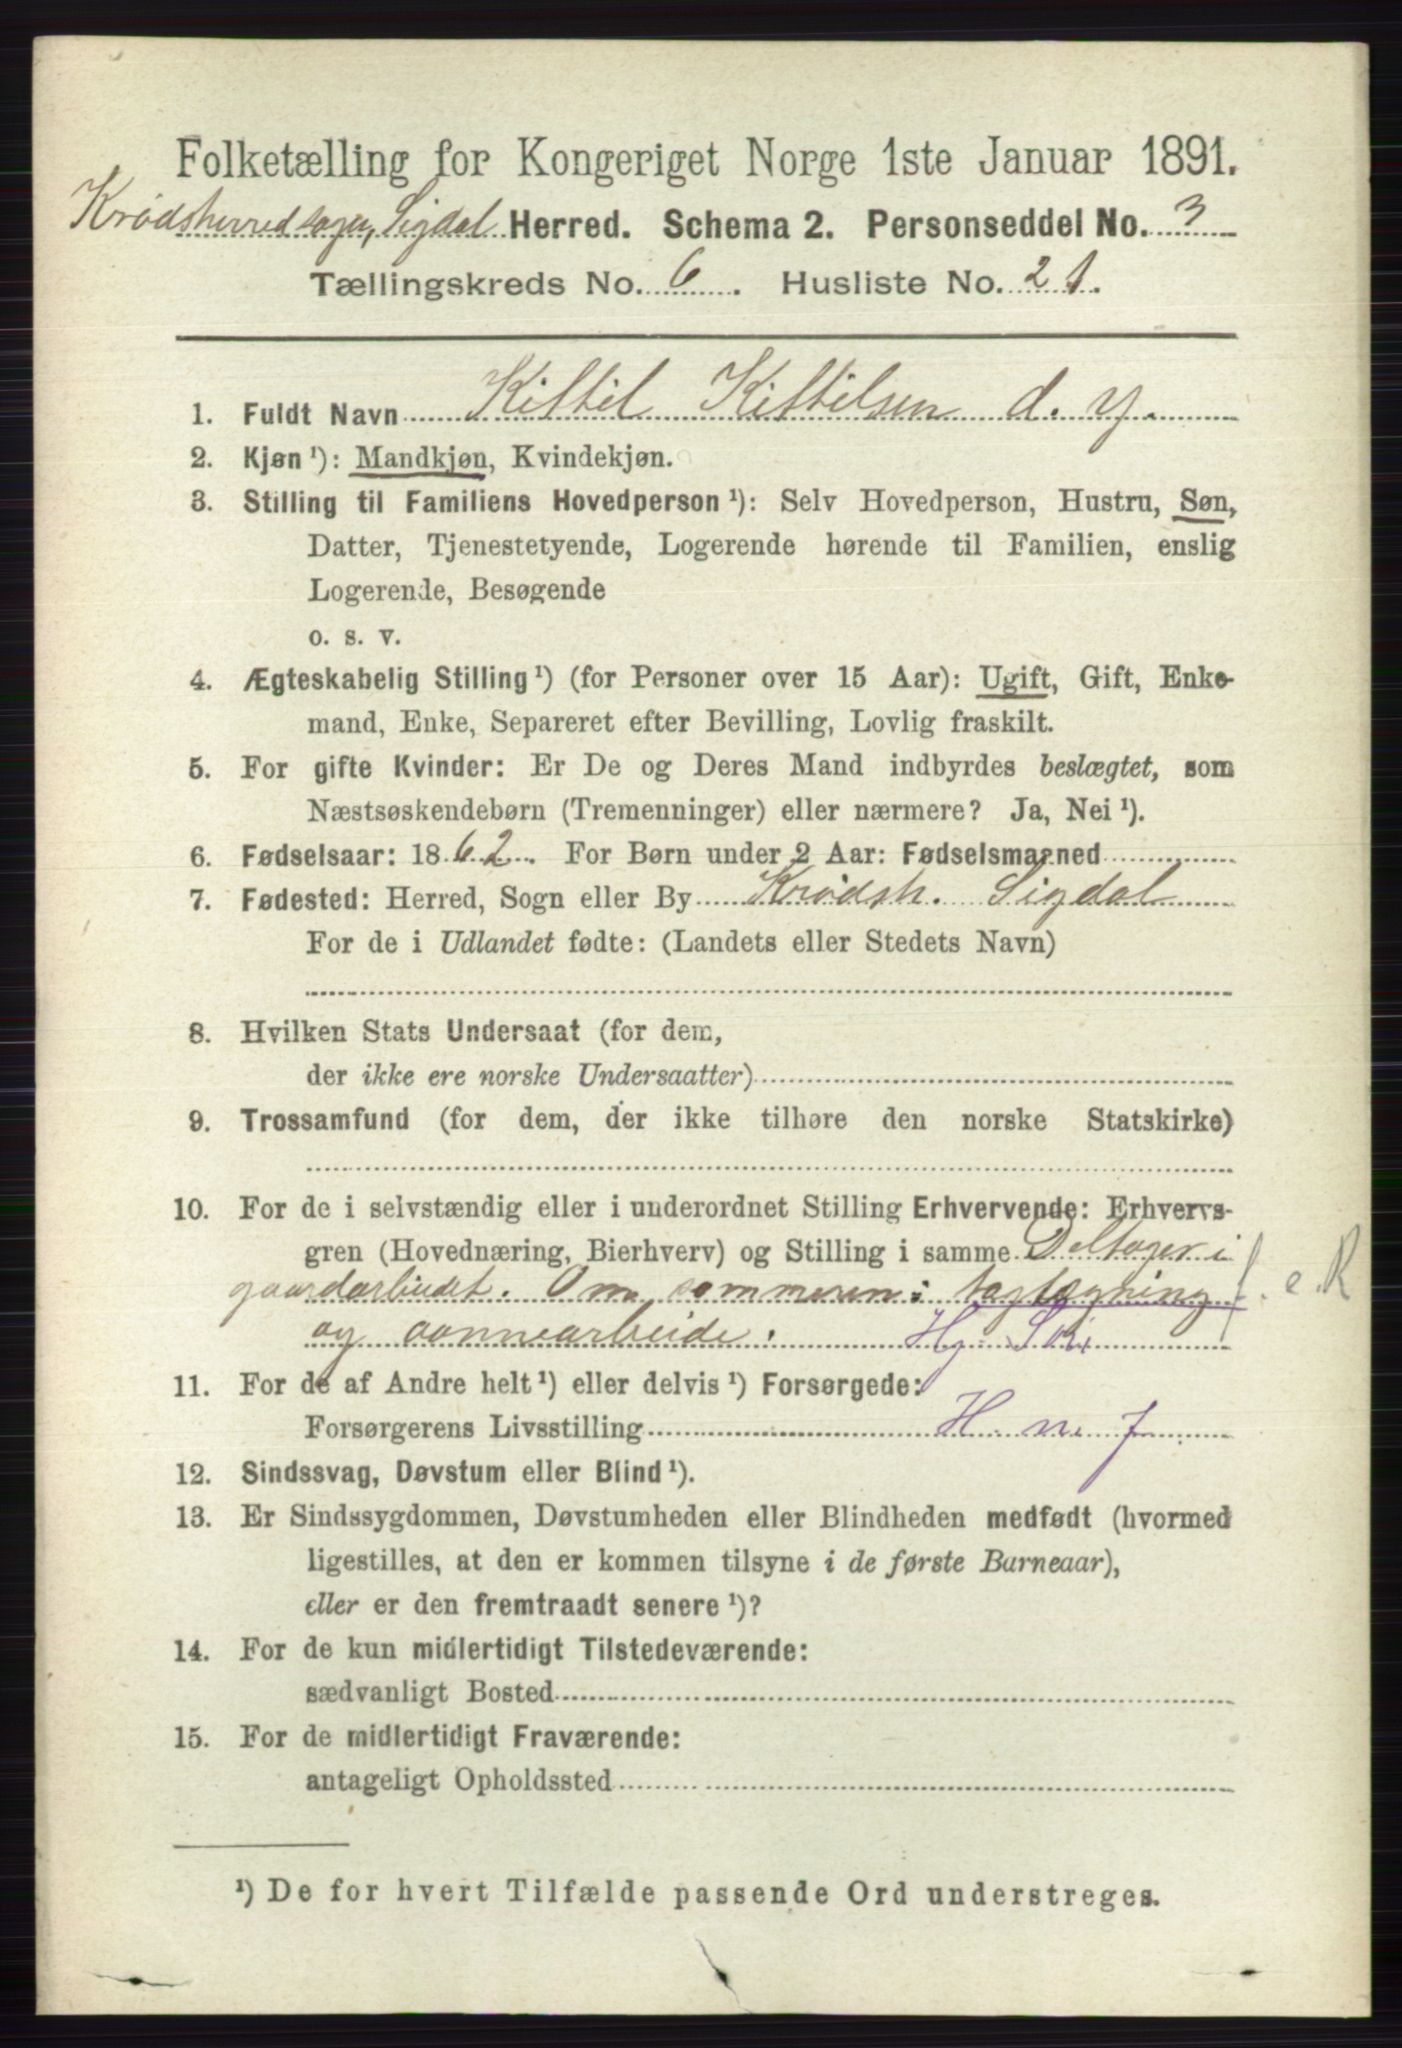 Folketælling for Kongeriget Norge 1ste Januar 1891.
Krødsherred sogn, Sigdal Herred. Schema 2. Personseddel No. 3
Tællingskreds No. 6. Husliste No. 21.
1. Fuldt Navn Kittil Kittilsen d. y.
2. Kjøn ¹): Mandkjøn, Kvindekjøn.
3. Stilling til Familiens Hovedperson ¹): Selv Hovedperson, Hustru, Søn,
Datter, Tjenestetyende, Logerende hørende til Familien, enslig
Logerende, Besøgende
o. s. v.
4. Ægteskabelig Stilling ¹) (for Personer over 15 Aar): Ugift, Gift, Enke-
mand, Enke, Separeret efter Bevilling, Lovlig fraskilt.
5. For gifte Kvinder: Er De og Deres Mand indbyrdes beslægtet, som
Næstsøskendebørn (Tremenninger) eller nærmere? Ja, Nei ¹).
6. Fødselsaar: 1862. For Børn under 2 Aar: Fødselsmaaned
7. Fødested: Herred, Sogn eller By Krødsh. Sigdal
For de i Udlandet fødte: (Landets eller Stedets Navn)
8. Hvilken Stats Undersaat (for dem,
der ikke ere norske Undersaatter)
9. Trossamfund (for dem, der ikke tilhøre den norske Statskirke)
10. For de i selvstændig eller i underordnet Stilling Erhvervende: Erhvervs-
gren (Hovednæring, Bierhverv) og Stilling i samme Deltager i
gaardarbeidet. Om sommeren: tagtægning f. e. R
og aannearbeide.
11. For de af Andre helt ¹) eller delvis ¹) Forsørgede:
Forsørgerens Livsstilling
12. Sindssvag, Døvstum eller Blind ¹).
13. Er Sindssygdommen, Døvstumheden eller Blindheden medfødt (hvormed
ligestilles, at den er kommen tilsyne i de første Barneaar),
eller er den fremtraadt senere ¹)?
14. For de kun midlertidigt Tilstedeværende:
sædvanligt Bosted
15. For de midlertidigt Fraværende:
antageligt Opholdssted
¹) De for hvert Tilfælde passende Ord understreges.